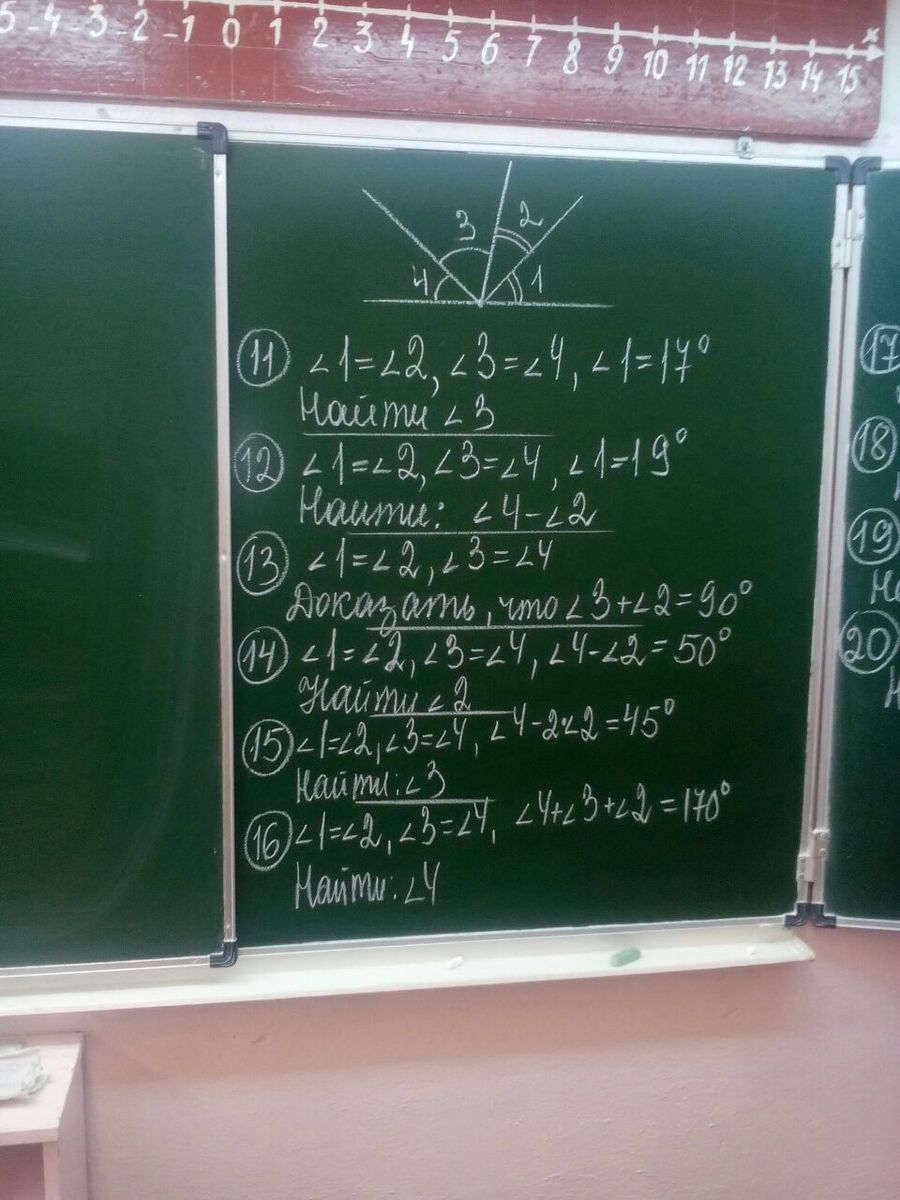 5 -4 -3 -2 -1 0 1 2 3 4 5 6 7 8 9 10 11 12 13 14 15 x
3 2
4 1
11 ∠1=∠2, ∠3=∠4, ∠1=17°
Найти ∠3
12 ∠1=∠2, ∠3=∠4, ∠1=19°
Найти: ∠4-∠2
13 ∠1=∠2, ∠3=∠4
Доказать, что ∠3+∠2=90°
14 ∠1=∠2, ∠3=∠4, ∠4-∠2=50°
Найти ∠2
15 ∠1=∠2, ∠3=∠4, ∠4-2·∠2=45°
Найти: ∠3
16 ∠1=∠2, ∠3=∠4, ∠4+∠3+∠2=170°
Найти: ∠4
17
18
19
20